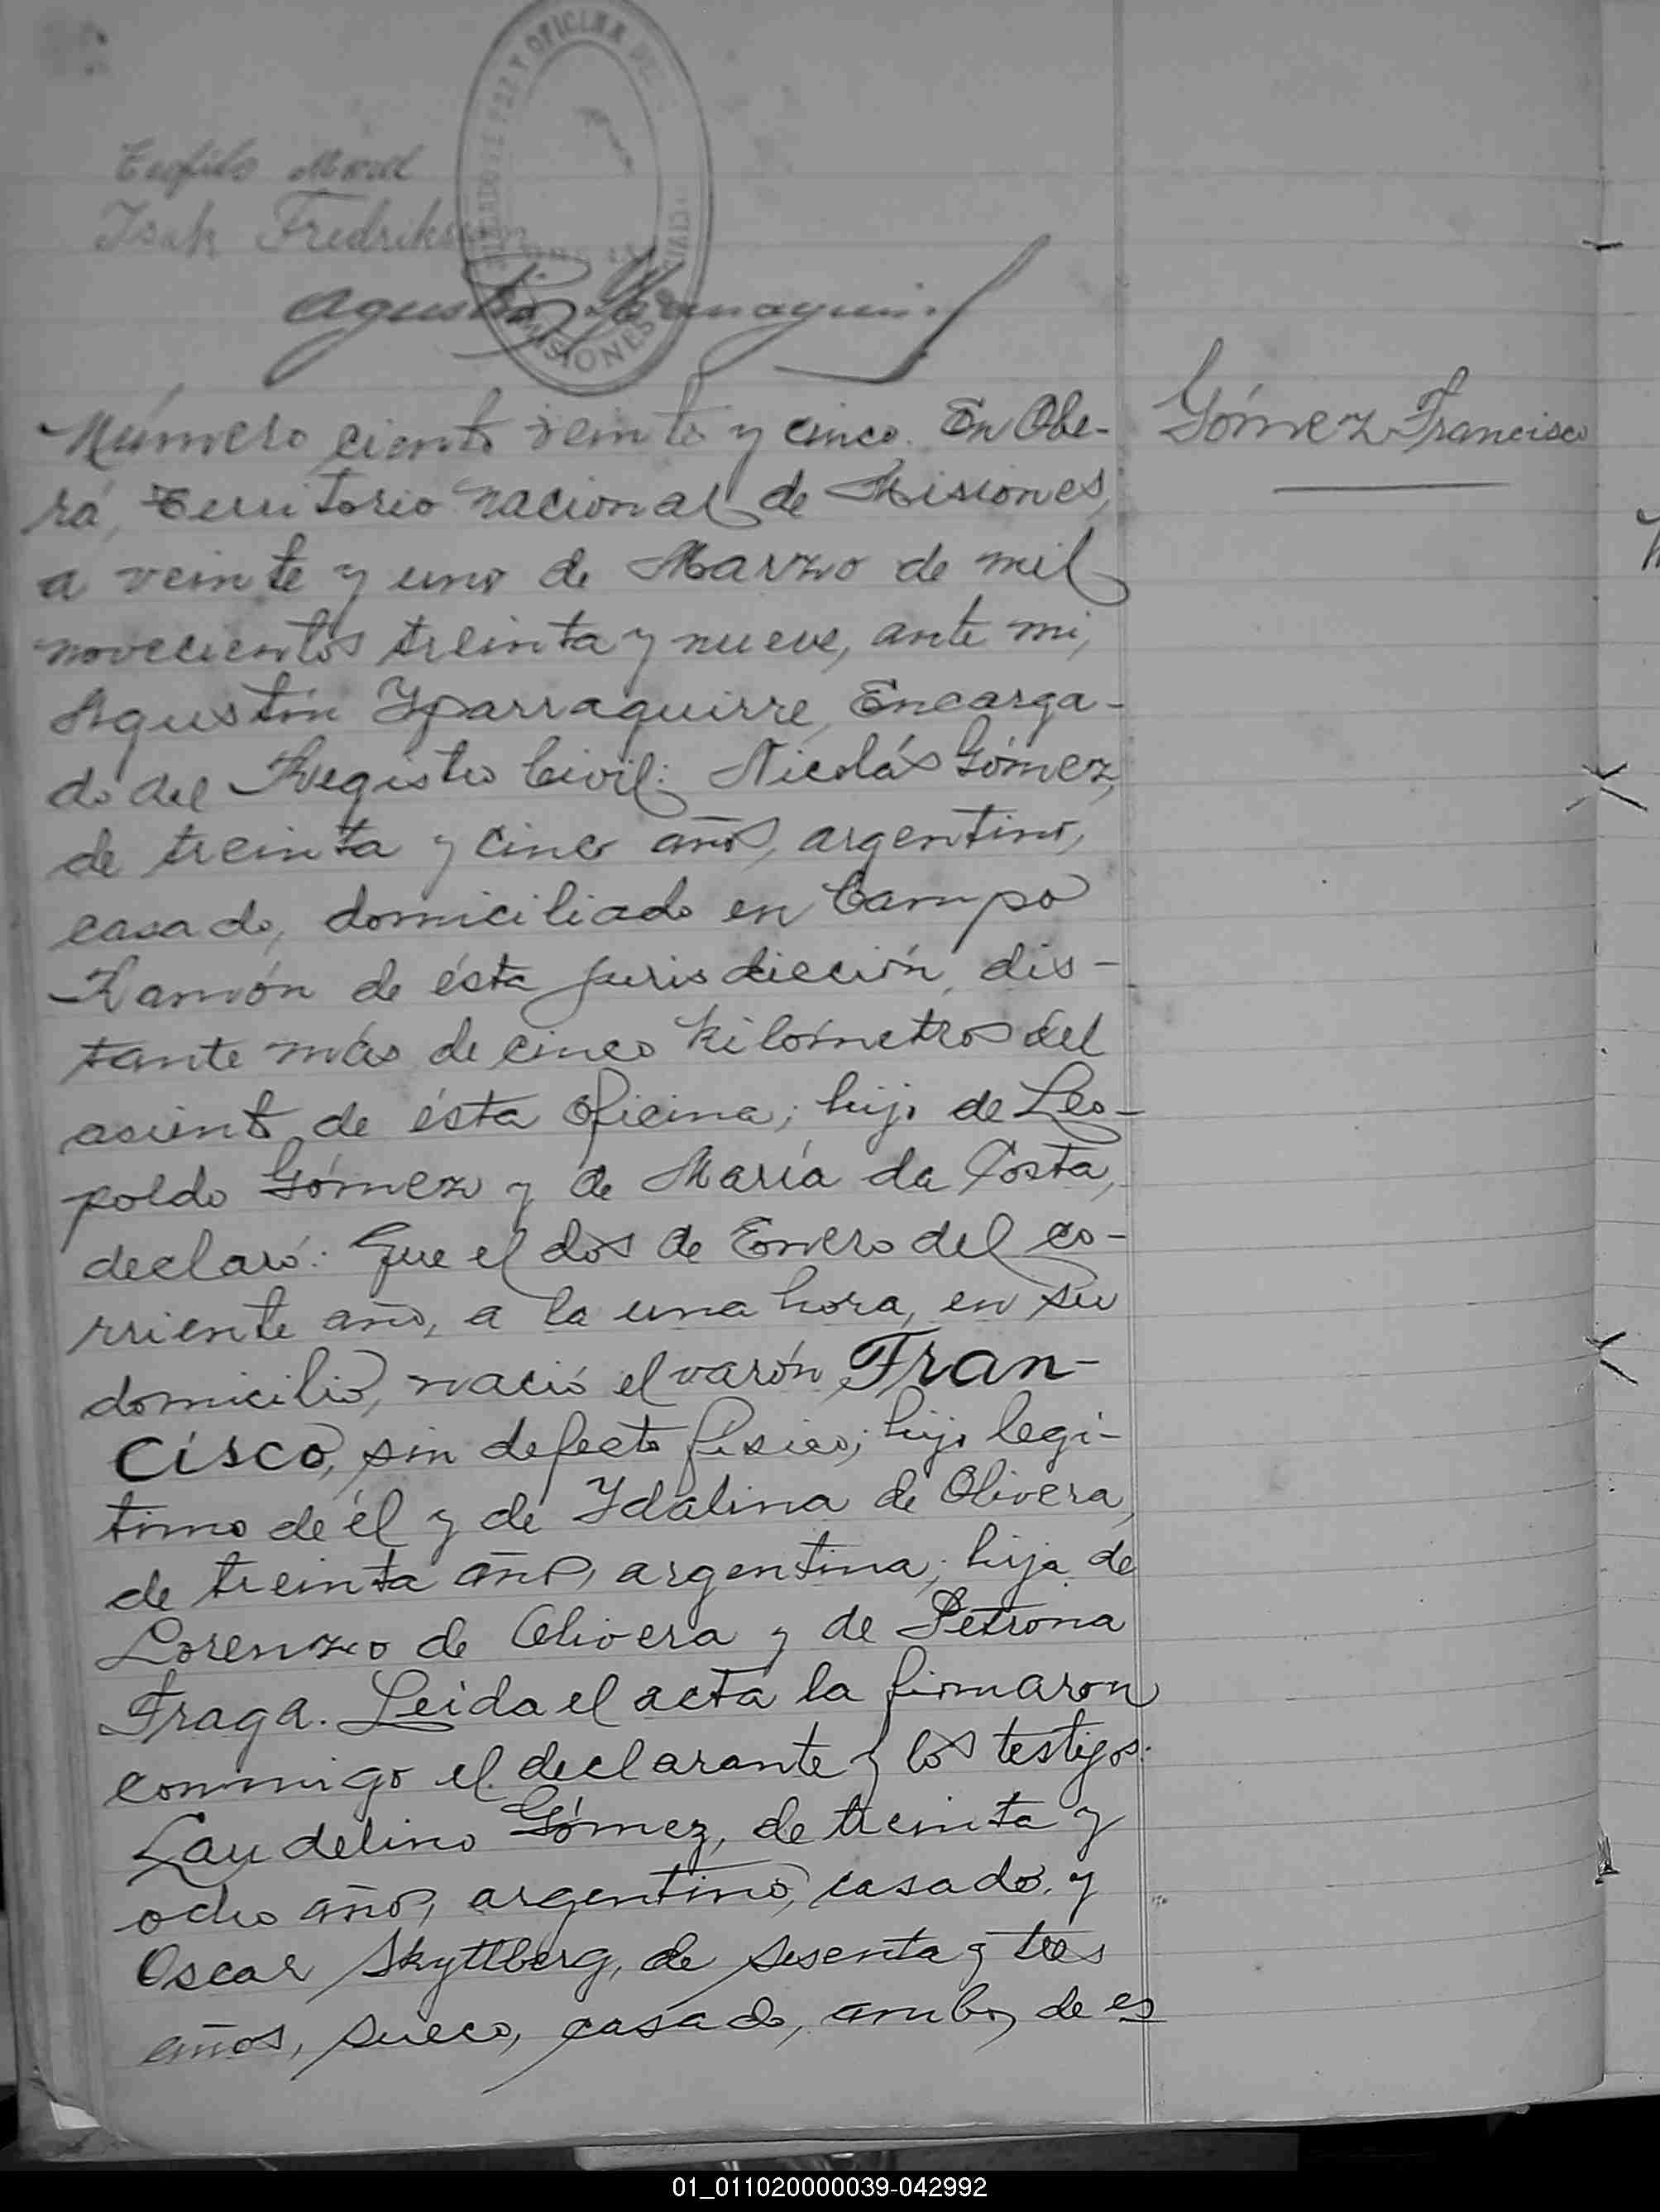 JUZGADO DE PAZ Y OFICINA DE
CIVIL
MISIONES
Teófilo
Isak Fredriksson
Agustín Yparraguirre
Número ciento veinte y cinco. En Obe-
Gómez Francisco
rá, Territorio Nacional de Misiones,
a veinte y uno de Marzo de mil
novecientos treinta y nueve, ante mi,
Agustín Yparraguirre, Encarga-
do del Registro Civil: Nicolás Gómez,
de treinta y cinco años, argentino,
casado, domiciliado en Campo
Ramón de ésta jurisdicción, dis-
tante más de cinco kilómetros del
asiento de ésta oficina; hijo de Leo-
poldo Gómez y de María da Costa,
declaró: Que el dos de Enero del co-
rriente año, a la una hora, en su
domicilio, nació el varón Fran-
cisco, sin defecto físico; hijo legí-
timo de él y de Ydalina de Olivera,
de treinta años, argentina; hija de
Lorenzo de Olivera y de Petrona
Fraga. Leida el acta la firmaron
conmigo el declarante y los testigos:
Laudelino Gómez, de treinta y
ocho años, argentino, casado, y
Oscar Skyttberg, de sesenta y tres
años, sueco, casado, ambos de es
01_011020000039-042992